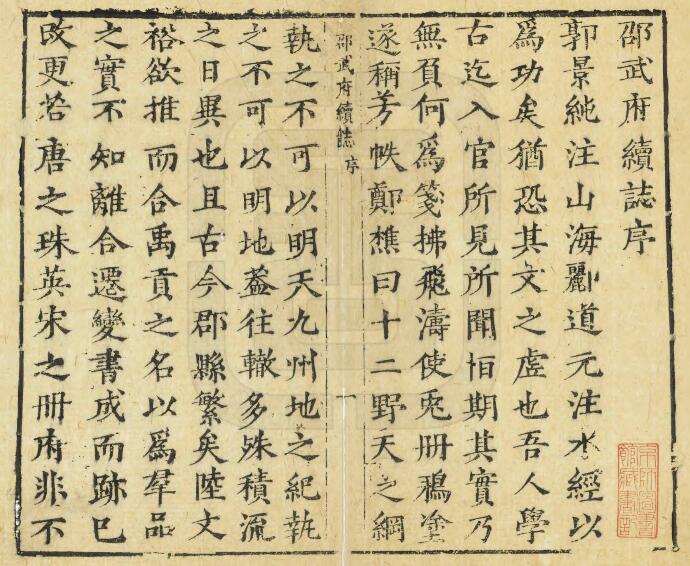 邵武府續誌序
郭景純注山海酈道元注水經以
爲功矣猶恐其文之虛也吾人學
古迄入官所見所聞怕期其實乃
無負何爲箋拂飛濤使兎冊鴉塗
遂稱芳帙鄭樵曰十二野天之綱
邵武府續誌 序
一
執之不可以明天九州地之紀執
之不可以明地葢往轍多殊積流
之日異也且古今郡縣繁矣陸文
裕欲推而合禹貢之名以爲羣品
之實不知離合遷變書成而跡已
改更若唐之珠英宋之冊府非不